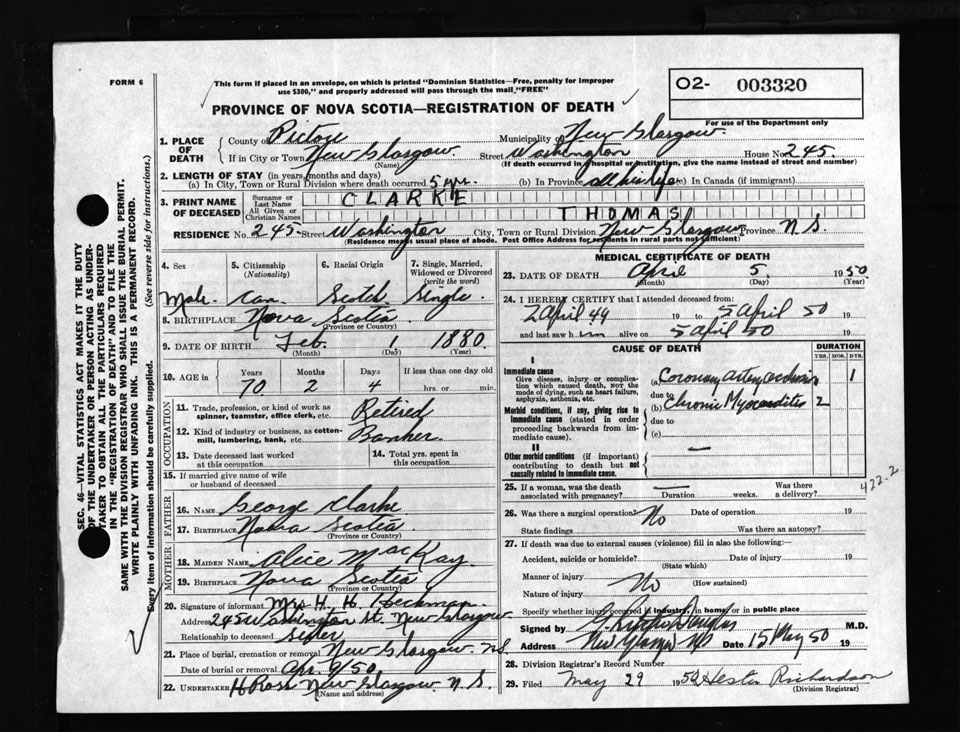 FORM 6
This form if placed in an envelope, on which is printed "Dominion Statistics—Free, penalty for improper
use $300," and properly addressed will pass through the mail "FREE"
O2- 003320
For use of the Department only
PROVINCE OF NOVA SCOTIA—REGISTRATION OF DEATH
1. PLACE OF DEATH
County of Pictou Municipality of New Glasgow
If in City or Town New Glasgow. Street Washington House No. 245.
(Name) (If death occurred in a hospital or institution, give the name instead of street and number)
2. LENGTH OF STAY (in years, months and days)
(a) In City, Town or Rural Division where death occurred 5 yrs. (b) In Province all his life (c) In Canada (if immigrant)
3. PRINT NAME OF DECEASED
Surname or Last Name CLARKE
All Given or Christian Names THOMAS
RESIDENCE No. 245 Street Washington City, Town or Rural Division New Glasgow Province N.S.
(Residence means usual place of abode. Post Office Address for residents in rural parts not sufficient)
4. Sex 5. Citizenship (Nationality) 6. Racial Origin 7. Single, Married, Widowed or Divorced (write the word)
Male. Can. Scotch Single.
8. BIRTHPLACE Nova Scotia
(Province or Country)
9. DATE OF BIRTH Feb. 1 1880.
(Month) (Day) (Year)
10. AGE in Years Months Days If less than one day old
70 2 4 hrs. or min.
OCCUPATION
11. Trade, profession, or kind of work as spinner, teamster, office clerk, etc. Retired
12. Kind of industry or business, as cotton-mill, lumbering, bank, etc. Banker.
13. Date deceased last worked at this occupation
14. Total yrs. spent in this occupation
15. If married give name of wife or husband of deceased
FATHER
16. Name George Clarke
17. Birthplace Nova Scotia
(Province or Country)
MOTHER
18. Maiden Name Alice MacKay
19. Birthplace Nova Scotia
(Province or Country)
20. Signature of informant Mrs H. H. Heckman
Address 245 Washington St. New Glasgow
Relationship to deceased sister
21. Place of burial, cremation or removal New Glasgow N.S.
Date of burial or removal Apr. 9/50
22. UNDERTAKER H Ross New Glasgow N.S.
(Name and address)
MEDICAL CERTIFICATE OF DEATH
23. DATE OF DEATH April 5. 1950.
(Month) (Day) (Year)
24. I HEREBY CERTIFY that I attended deceased from:
2 April 49 19 to 5 April 50 19
and last saw him alive on 5 April 50 19
CAUSE OF DEATH
DURATION
YRS. MOS. DYS.
I
Immediate cause
Give disease, injury or complication which caused death, NOT the mode of dying, such as heart failure, asphyxia, asthenia, etc.
(a) Coronary artery occlusion 1
due to
Morbid conditions, if any, giving rise to immediate cause (stated in order proceeding backwards from immediate cause).
(b) Chronic Myocarditis 2
due to
(c)
II
Other morbid conditions (if important) contributing to death but not causally related to immediate cause.
—
422.2
25. If a woman, was the death associated with pregnancy? — Duration weeks. Was there a delivery?
26. Was there a surgical operation? No Date of operation 19
State findings Was there an autopsy?
27. If death was due to external causes (violence) fill in also the following:—
Accident, suicide or homicide? Date of injury 19
(State which)
Manner of injury No
(How sustained)
Nature of injury
Specify whether injury occurred in industry, in home, or in public place
Signed by Douglas M.D.
Address New Glasgow NS Date 15 May 50 19
28. Division Registrar's Record Number
29. Filed May 29 1950 Hester Richardson
(Division Registrar)
SEC. 46—VITAL STATISTICS ACT MAKES IT THE DUTY
OF THE UNDERTAKER OR PERSON ACTING AS UNDER-
TAKER TO OBTAIN ALL THE PARTICULARS REQUIRED
IN THE "REGISTRATION OF DEATH" AND TO FILE THE
SAME WITH THE DIVISION REGISTRAR WHO SHALL ISSUE THE BURIAL PERMIT.
WRITE PLAINLY WITH UNFADING INK. THIS IS A PERMANENT RECORD.
Every item of information should be carefully supplied. (See reverse side for instructions.)